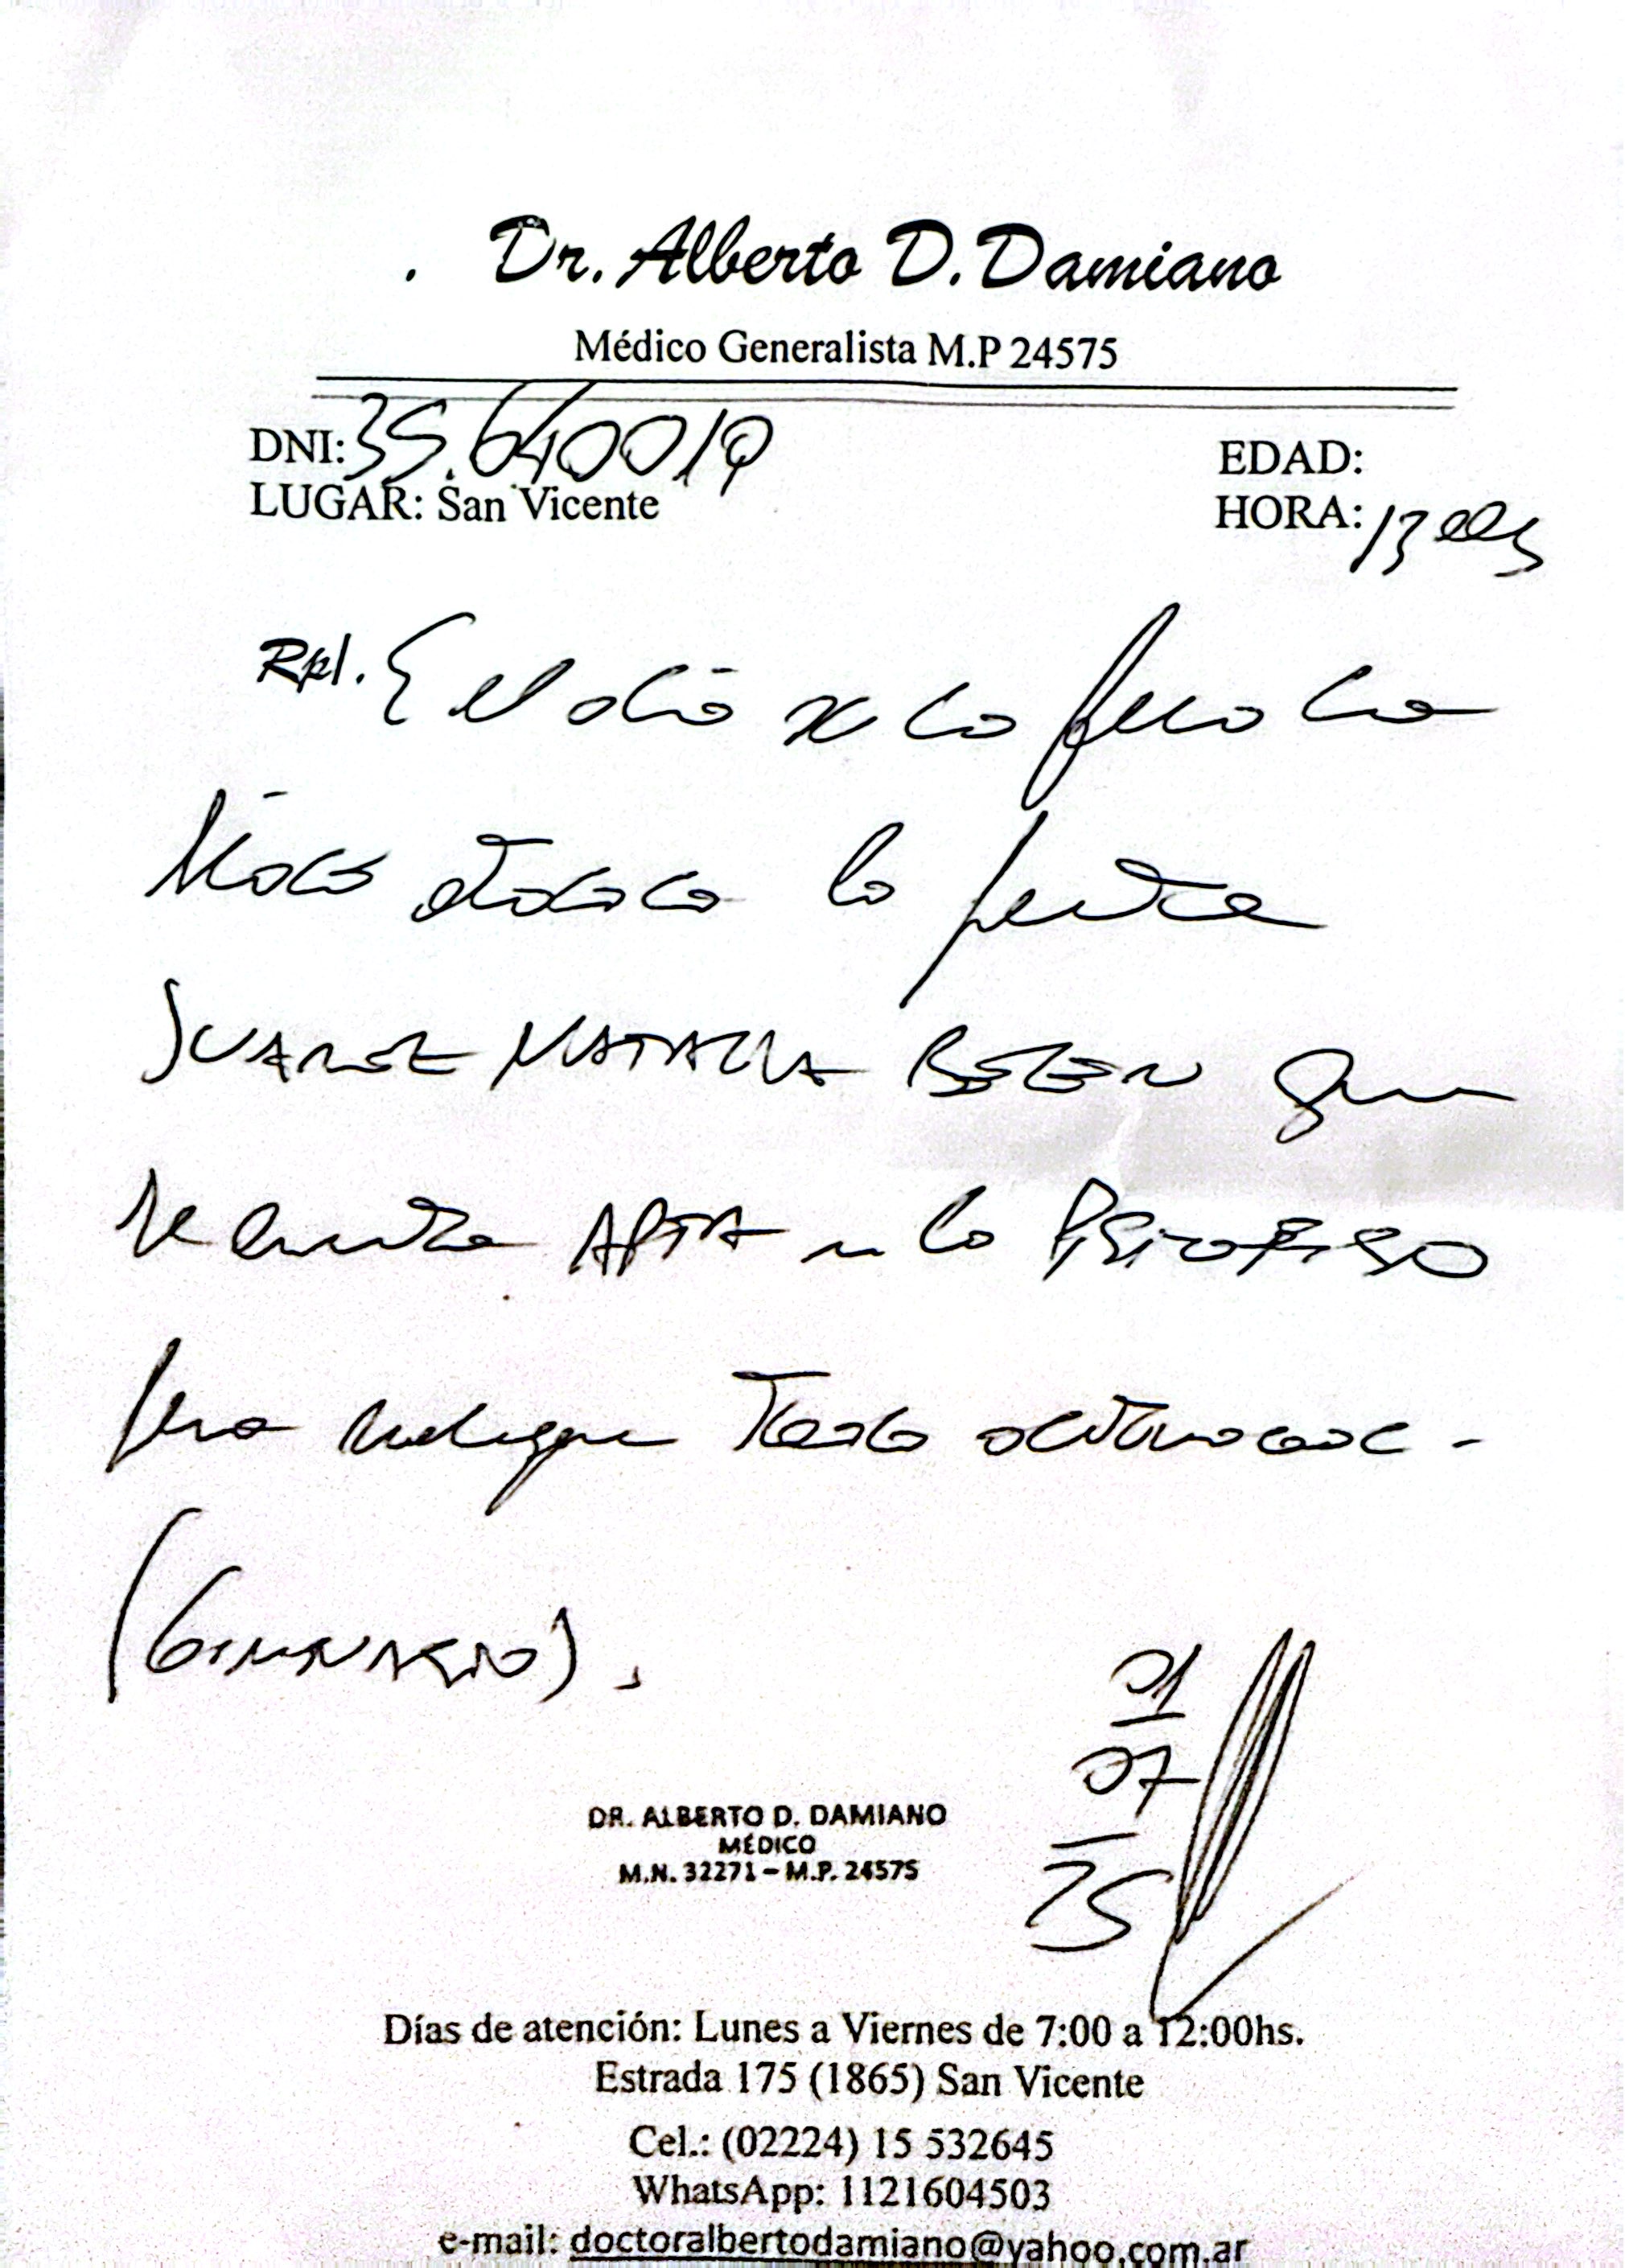 Dr. Alberto D. Damiano
Médico Generalista M.P 24575
DNI: 35.640019
EDAD:
LUGAR: San Vicente
HORA: 13
Rp/. En el día de la fecha
la
SUAREZ NATALIA BELEN que
se encuentra APTA en lo PSICOFISICO
para
(GIMNASIO).
01
07
25
DR. ALBERTO D. DAMIANO
MÉDICO
M.N. 32271 – M.P. 24575
Días de atención: Lunes a Viernes de 7:00 a 12:00hs.
Estrada 175 (1865) San Vicente
Cel.: (02224) 15 532645
WhatsApp: 1121604503
e-mail: doctoralbertodamiano@yahoo.com.ar